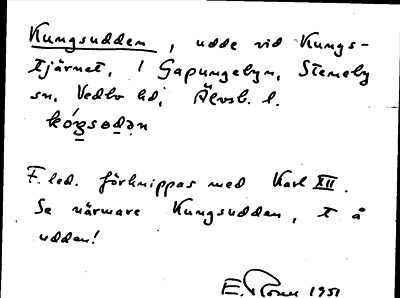 Kungsudden, udde vid Kungs-
tjärnet, i Gapungebyn, Steneby
sn, Vedbo hd, Älvsb. l.
kóŋsɵdən
F. led. förknippas med Karl XII.
Se närmare Kungsudden, t å
udden!
E. 1951